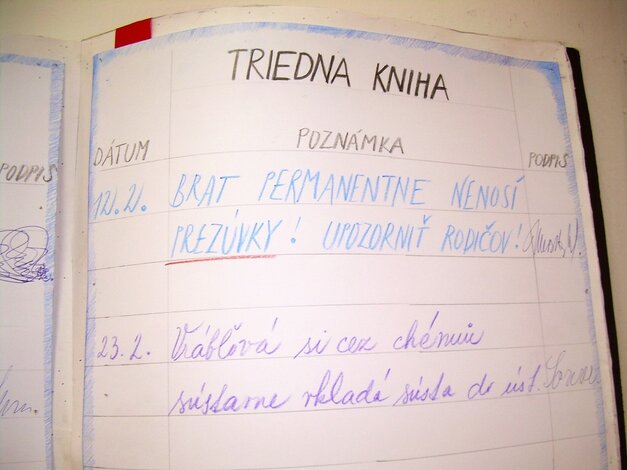 TRIEDNA KNIHA
DÁTUM POZNÁMKA PODPIS
PODPIS
12.2. BRAT PERMANENTNE NENOSÍ
PREZÚVKY! UPOZORNIŤ RODIČOV!
23.2. Vráblová si cez chémiu
sústavne vkladá sústa do úst.